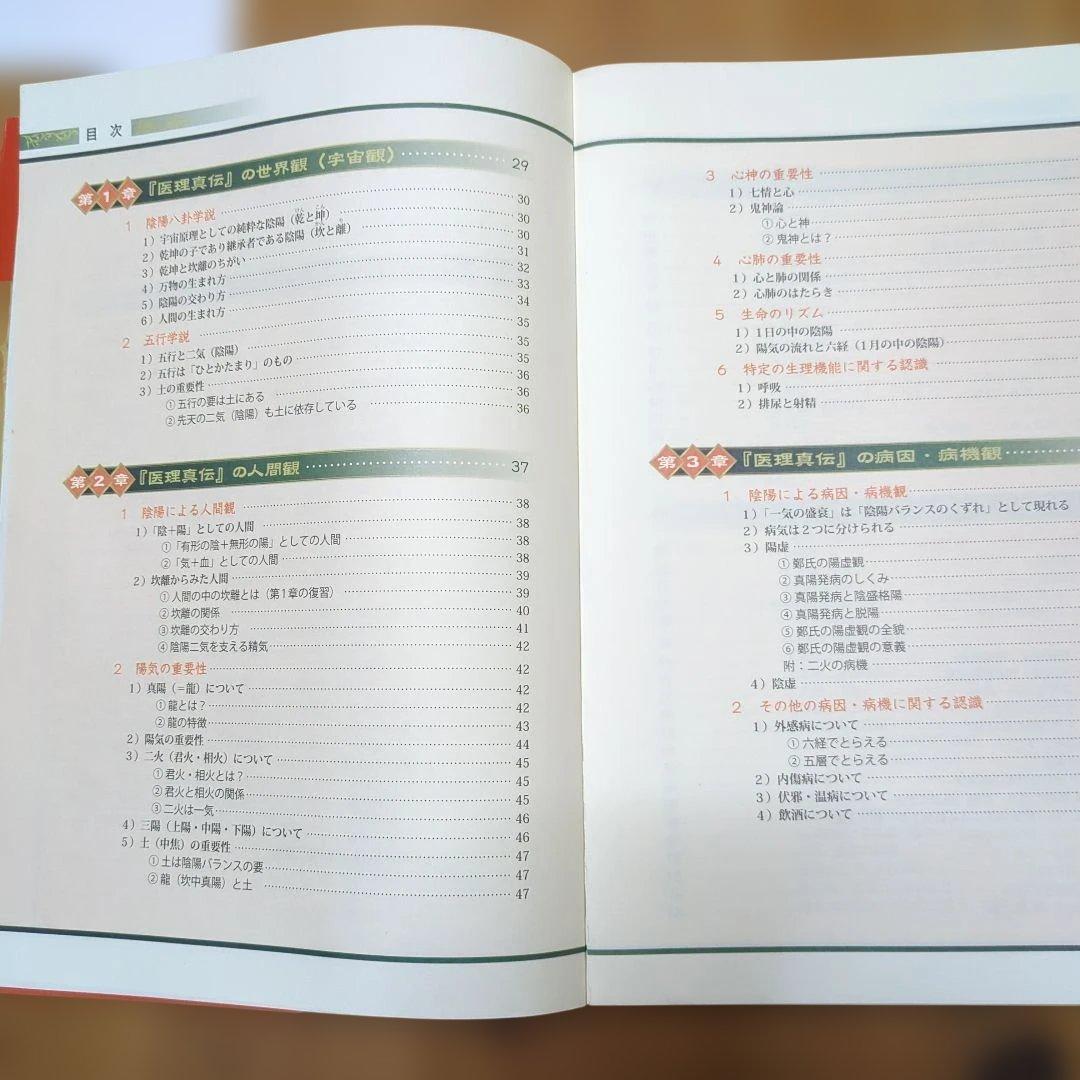 目次
第1章 『医理真伝』の世界観（宇宙観）……29
1 陰陽八卦学説……30
1）宇宙原理としての純粋な陰陽（乾と坤）……30
2）乾坤の子であり継承者である陰陽（坎と離）……30
3）乾坤と坎離のちがい……31
4）万物の生まれ方……32
5）陰陽の交わり方……33
6）人間の生まれ方……34
2 五行学説……35
1）五行と二気（陰陽）……35
2）五行は「ひとかたまり」のもの……35
3）土の重要性……36
①五行の要は土にある……36
②先天の二気（陰陽）も土に依存している……36
第2章 『医理真伝』の人間観……37
1 陰陽による人間観……38
1）「陰＋陽」としての人間……38
①「有形の陰＋無形の陽」としての人間……38
②「気＋血」としての人間……38
2）坎離からみた人間……39
①人間の中の坎離とは（第1章の復習）……39
②坎離の関係……40
③坎離の交わり方……41
④陰陽二気を支える精気……42
2 陽気の重要性……42
1）真陽（＝龍）について……42
①龍とは？……42
②龍の特徴……43
2）陽気の重要性……44
3）二火（君火・相火）について……45
①君火・相火とは？……45
②君火と相火の関係……45
③二火は一気……46
4）三陽（上陽・中陽・下陽）について……46
5）土（中焦）の重要性……47
①土は陰陽バランスの要……47
②龍（坎中真陽）と土……47
3 心神の重要性
1）七情と心
2）鬼神論
①心と神
②鬼神とは？
4 心肺の重要性
1）心と肺の関係
2）心肺のはたらき
5 生命のリズム
1）1日の中の陰陽
2）陽気の流れと六経（1月の中の陰陽）
6 特定の生理機能に関する認識
1）呼吸
2）排尿と射精
第3章 『医理真伝』の病因・病機観
1 陰陽による病因・病機観
1）「一気の盛衰」は「陰陽バランスのくずれ」として現れる
2）病気は2つに分けられる
3）陽虚
①鄭氏の陽虚観
②真陽発病のしくみ
③真陽発病と陰盛格陽
④真陽発病と脱陽
⑤鄭氏の陽虚観の全貌
⑥鄭氏の陽虚観の意義
附：二火の病機
4）陰虚
2 その他の病因・病機に関する認識
1）外感病について
①六経でとらえる
②五層でとらえる
2）内傷病について
3）伏邪・温病について
4）飲酒について